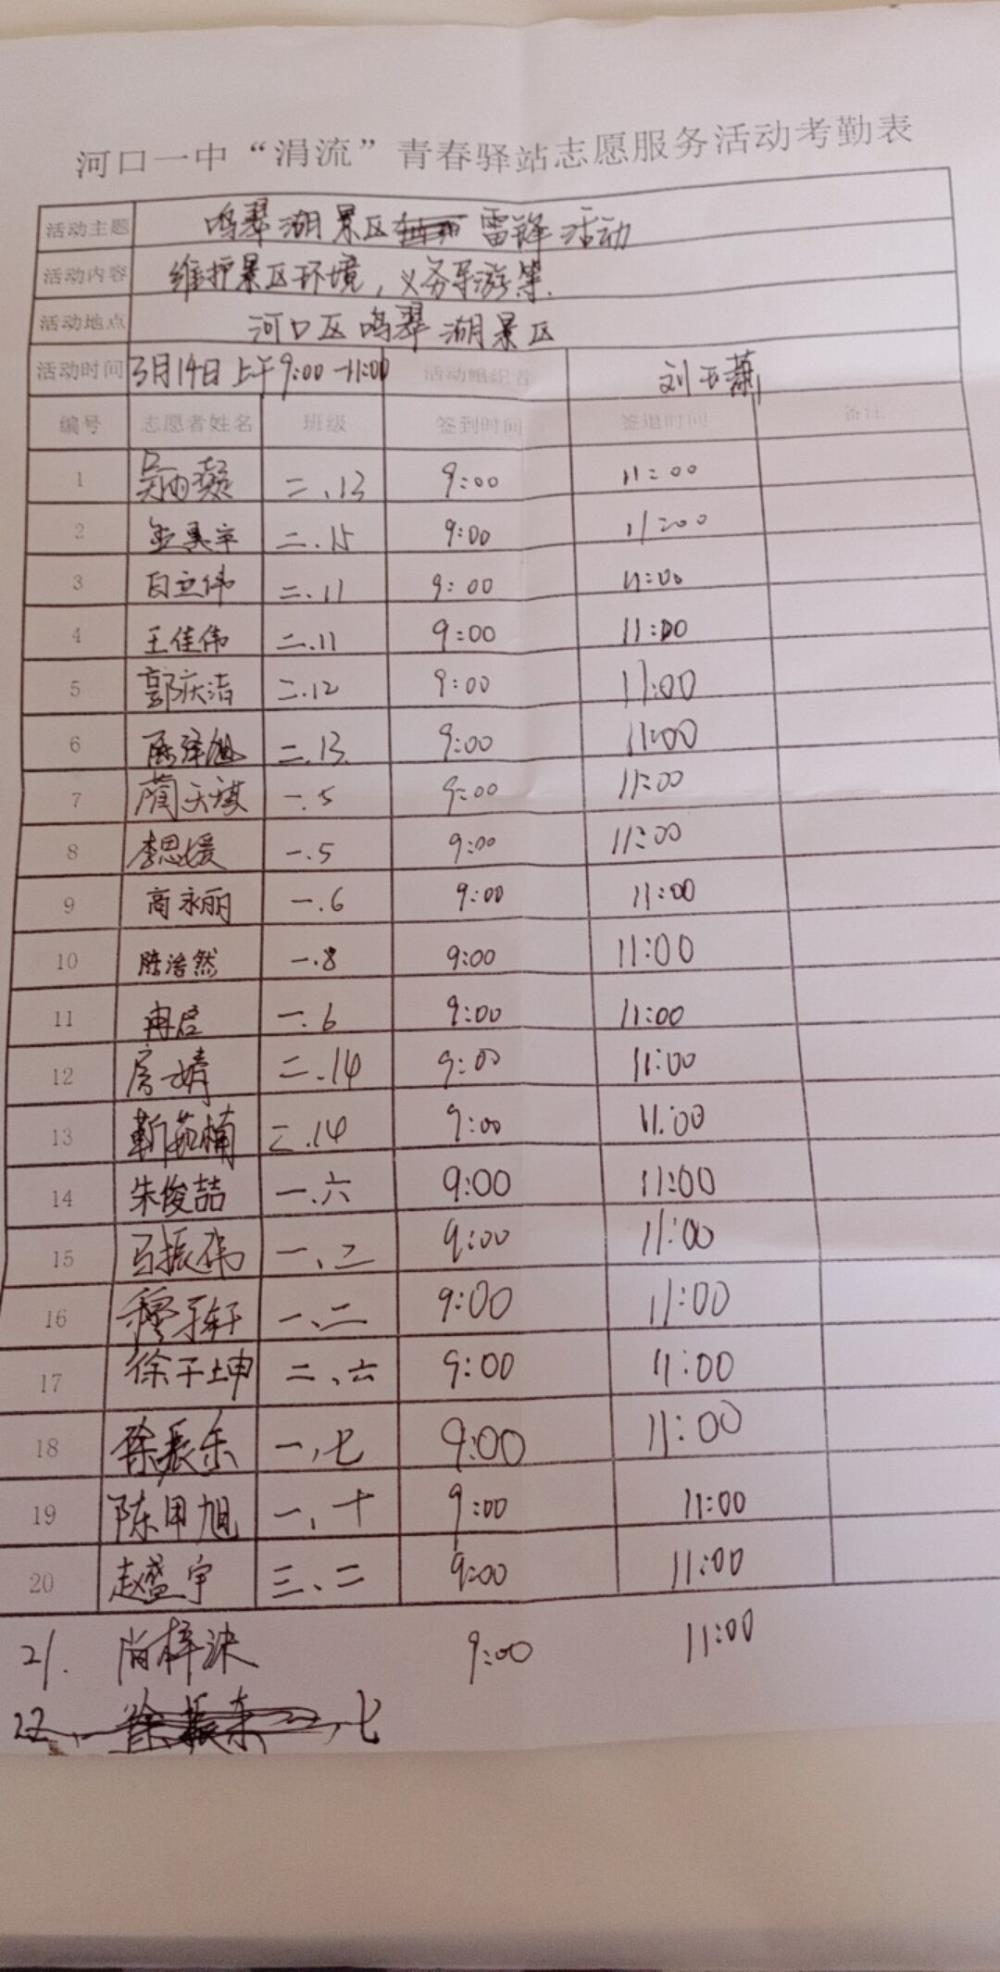 河口一中“涓流”青春驿站志愿服务活动考勤表
活动主题 鸣翠湖景区 雷锋活动
活动内容 维护景区环境，义务导游等.
活动地点 河口区鸣翠湖景区
活动时间 3月14日上午9:00-11:00 活动组织者 刘玉萧
编号 志愿者姓名 班级 签到时间 签退时间 备注
1 二、13 9:00 11:00
2 二.15 9:00 11:00
3 白立伟 二.11 9:00 11:00
4 王佳伟 二.11 9:00 11:00
5 郭庆洁 二.12 9:00 11:00
6 二.13 9:00 11:00
7 蔺天祺 一.5 9:00 11:00
8 李思媛 一.5 9:00 11:00
9 高永丽 一.6 9:00 11:00
10 陈浩然 一.8 9:00 11:00
11 冉启 一.6 9:00 11:00
12 房婧 二.14 9:00 11:00
13 靳茹楠 二.14 9:00 11:00
14 朱俊喆 一.六 9:00 11:00
15 马振伟 一、二 9:00 11:00
16 程子轩 一、二 9:00 11:00
17 徐子坤 二、六 9:00 11:00
18 徐振东 一、七 9:00 11:00
19 陈甲旭 一、十 9:00 11:00
20 赵盛宇 三、二 9:00 11:00
21. 尚梓泱 9:00 11:00
22、徐振东 一、七